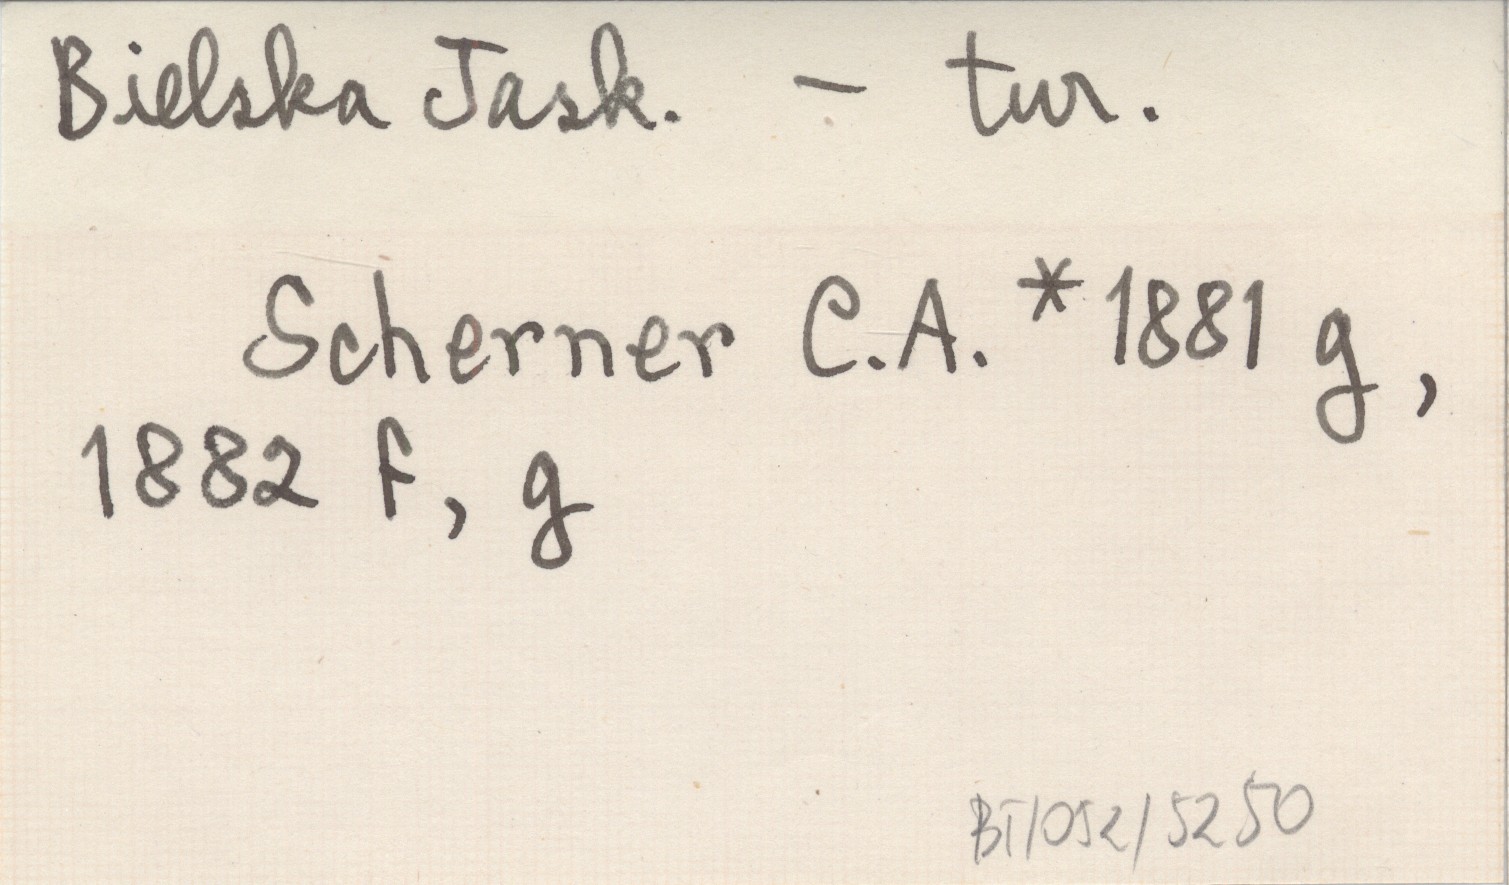 Bielska Jask. - tur.
Scherner C.A. * 1881 g,
1882 f, g
BT/052/5250